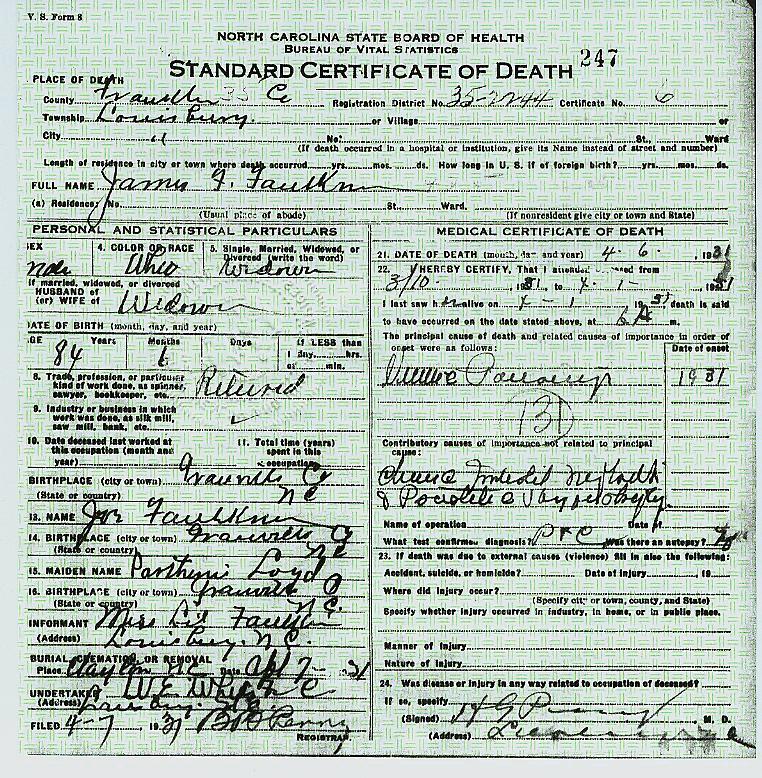 V. S. Form 8
NORTH CAROLINA STATE BOARD OF HEALTH
BUREAU OF VITAL STATISTICS
STANDARD CERTIFICATE OF DEATH 247
PLACE OF DEATH
County Franklin 35 Co Registration District No. 35-2244 Certificate No. 6
Township Louisburg. or Village or
City " No. St., Ward
(If death occurred in a hospital or institution, give its Name instead of street and number)
Length of residence in city or town where death occurred yrs. mos. ds. How long in U. S. if of foreign birth? yrs. mos. ds.
FULL NAME James F. Faulkner
(a) Residence: No. St. Ward.
(Usual place of abode) (If nonresident give city or town and State)
PERSONAL AND STATISTICAL PARTICULARS
SEX 4. COLOR OR RACE 5. Single, Married, Widowed, or
Divorced (write the word)
male White Widower
If married, widowed, or divorced
HUSBAND OF
(or) WIFE of Widower
DATE OF BIRTH (month, day, and year)
AGE Years Months Days If LESS than
84 6 1 day, hrs.
or min.
8. Trade, profession, or particular
kind of work done, as spinner,
sawyer, bookkeeper, etc. Retired
9. Industry or business in which
work was done, as silk mill,
saw mill, bank, etc.
10. Date deceased last worked at 11. Total time (years)
this occupation (month and spent in this
year) occupation
BIRTHPLACE (city or town) Granville Co
(State or country) NC
13. NAME Joe Faulkner
14. BIRTHPLACE (city or town) Granville Co
(State or country) NC
15. MAIDEN NAME Loyd
16. BIRTHPLACE (city or town) Granville Co
(State or country) N.C.
INFORMANT Miss Faulkner
(Address) Louisburg. N.C.
BURIAL, CREMATION, OR REMOVAL
Place NC Date Apl 7- 31
UNDERTAKER W E White
(Address) Louisburg, N.C.
FILED 4-7, 1931 Perry
REGISTRAR.
MEDICAL CERTIFICATE OF DEATH
21. DATE OF DEATH (month, day, and year) 4- 6. , 1931
22. I HEREBY CERTIFY, That I attended deceased from
3/10- 1931 to 4- 1- 1931
I last saw h alive on 4-1- 1931 death is said
to have occurred on the date stated above, at 6 A m.
The principal cause of death and related causes of importance in order of
onset were as follows: Date of onset
1931
131
Contributory causes of importance not related to principal
cause:
Name of operation Date of
What test confirmed diagnosis? Was there an autopsy? No
23. If death was due to external causes (violence) fill in also the following:
Accident, suicide, or homicide? Date of injury , 19
Where did injury occur?
(Specify city or town, county, and State)
Specify whether injury occurred in industry, in home, or in public place.
Manner of injury
Nature of injury
24. Was disease or injury in any way related to occupation of deceased?
If so, specify
(Signed) H G Perry M. D.
(Address) Louisburg